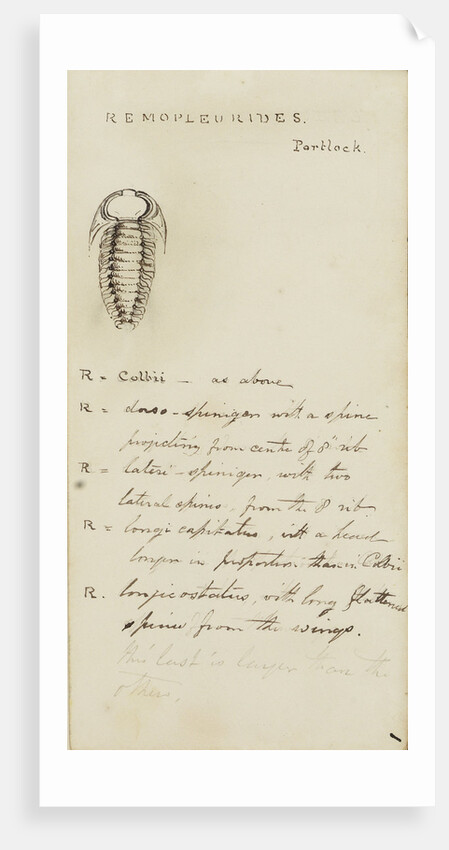 REMOPLEURIDES.
Portlock.
R = Colbii — as above
R = dorso-spiniger with a spine
projecting from centre of 8" rib
R = lateri-spiniger, with two
lateral spines, from the 8 rib
R = longi capitatus, with a head
longer in proportion than in Colbii
R. longicostatus, with long flattened
spines from the wings.
this last is larger than the
others.